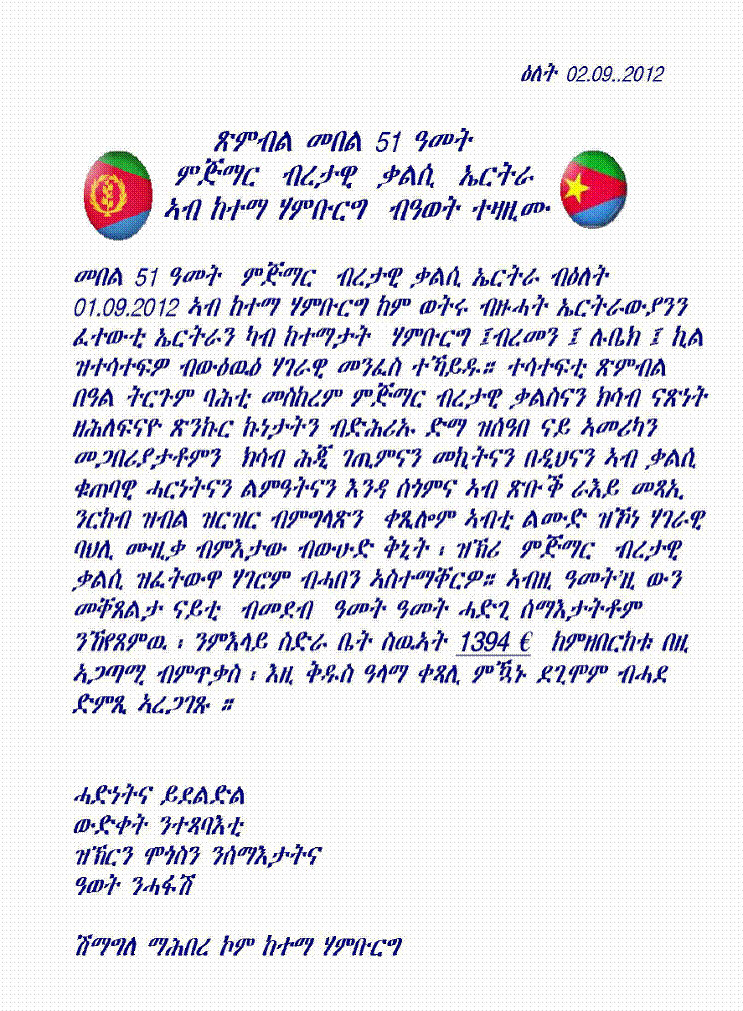 ዕለት 02.09..2012
ጽምብል መበል 51 ዓመት
ምጅማር ብረታዊ ቃልሲ ኤርትራ
ኣብ ከተማ ሃምቡርግ ብዓወት ተዛዚሙ
መበል 51 ዓመት ምጅማር ብረታዊ ቃልሲ ኤርትራ ብዕለት
01.09.2012 ኣብ ከተማ ሃምቡርግ ከም ወትሩ ብዙሓት ኤርትራውያንን
ፈተውቲ ኤርትራን ካብ ከተማታት ሃምቡርግ ፤ብረመን ፤ ሉቤክ ፤ ኪል
ዝተሳተፍዎ ብውዕዉዕ ሃገራዊ መንፈስ ተኻይዱ። ተሳተፍቲ ጽምብል
በዓል ትርጉም ባሕቲ መስከረም ምጅማር ብረታዊ ቃልስናን ክሳብ ናጽነት
ዘሕለፍናዮ ጽንኩር ኩነታትን ብድሕሪኡ ድማ ዝሰዓበ ናይ ኣመሪካን
መጋበራያታቶምን ክሳብ ሕጂ ገጢምናን መኪትናን በዲህናን ኣብ ቃልሲ
ቁጠባዊ ሓርነትናን ልምዓትናን እንዳ ሰጎምና ኣብ ጽቡቕ ራእይ መጻኢ
ንርከብ ዝብል ዝርዝር ብምግላጽን ቀጺሎም ኣብቲ ልሙድ ዝኾነ ሃገራዊ
ባህሊ ሙዚቃ ብምእታው ብውሁድ ቅኒት ፡ ዝኽሪ ምጅማር ብረታዊ
ቃልሲ ዝፈትውዋ ሃገሮም ብሓበን ኣስተማቐርዎ። ኣብዚ ዓመት'ዚ ውን
መቐጸልታ ናይቲ ብመደብ ዓመት ዓመት ሓድጊ ሰማእታትቶም
ንኽየጸምዉ ፡ ንምእላይ ስድራ ቤት ስዉኣት 1394 € ከምዘበርከቱ በዚ
ኣጋጣሚ ብምጥቃስ ፡ እዚ ቅዱስ ዓላማ ቀጻሊ ምዃኑ ደጊሞም ብሓደ
ድምጺ ኣረጋገጹ ።
ሓድነትና ይደልድል
ውድቀት ንተጻባእቲ
ዝኽርን ሞጎስን ንሰማእታትና
ዓወት ንሓፋሽ
ሽማግለ ማሕበረ ኮም ከተማ ሃምቡርግ